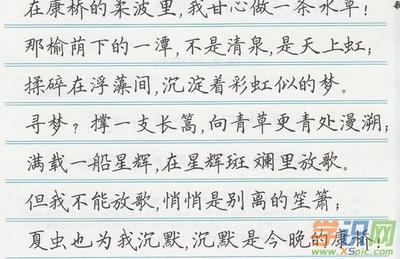 在康桥的柔波里，我甘心做一条水草！
那榆荫下的一潭，不是清泉，是天上虹；
揉碎在浮藻间，沉淀着彩虹似的梦。
寻梦？撑一支长篙，向青草更青处漫溯；
满载一船星辉，在星辉斑斓里放歌。
但我不能放歌，悄悄是别离的笙箫；
夏虫也为我沉默，沉默是今晚的康桥！
学识网
XSpic.com